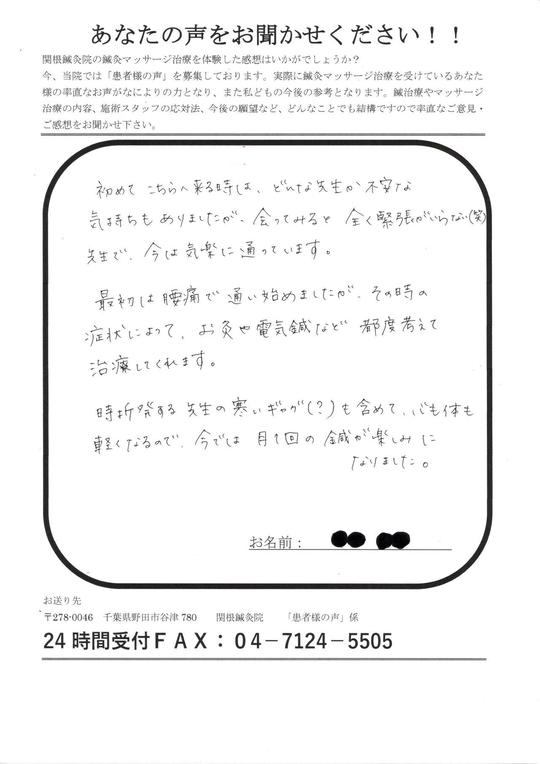 あなたの声をお聞かせください！！
関根鍼灸院の鍼灸マッサージ治療を体験した感想はいかがでしょうか？
今、当院では「患者様の声」を募集しております。実際に鍼灸マッサージ治療を受けているあなた
様の率直なお声がなによりの力となり、また私どもの今後の参考となります。鍼治療やマッサージ
治療の内容、施術スタッフの応対法、今後の願望など、どんなことでも結構ですので率直なご意見・
ご感想をお聞かせ下さい。
初めて こちらへ来る時は、どんな先生か不安な
気持ちもありましたが、会ってみると 全く緊張がいらない(笑)
先生で、今は気楽に通っています。
最初は腰痛で通い始めましたが、その時の
症状によって、お灸や電気鍼など 都度考えて
治療してくれます。
時折発する 先生の寒いギャグ(?)も含めて、心も体も
軽くなるので、今では 月1回の 鍼が楽しみに
なりました。
お名前：
お送り先
〒278-0046 千葉県野田市谷津 780 関根鍼灸院 「患者様の声」係
24 時間受付ＦＡＸ：０４－７１２４－５５０５